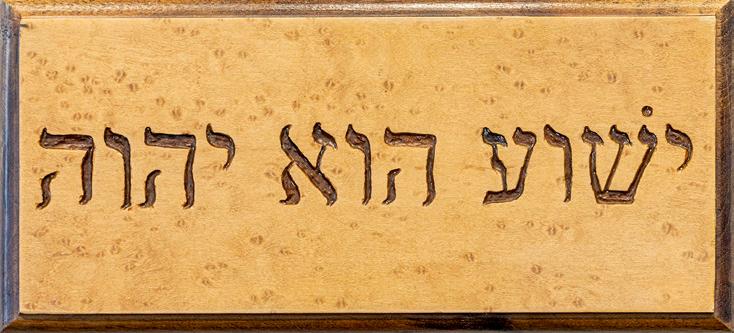 ישׁוע הוא יהוה